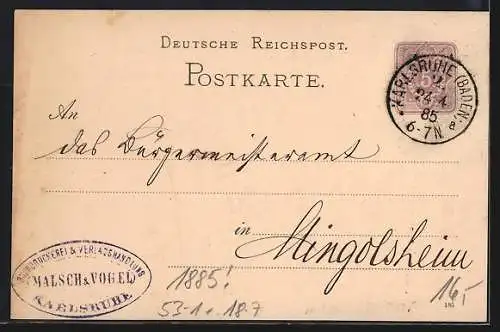 DEUTSCHE REICHSPOST.
POSTKARTE.
KARLSRUHE (BADEN)
24 4
85
6-7N
An
das Bürgermeisteramt
in
Mingolsheim
BUCHDRUCKEREI & VERLAGSHANDLUNG
MALSCH & VOGEL
KARLSRUHE
1885!
53-1 18.7
16,-